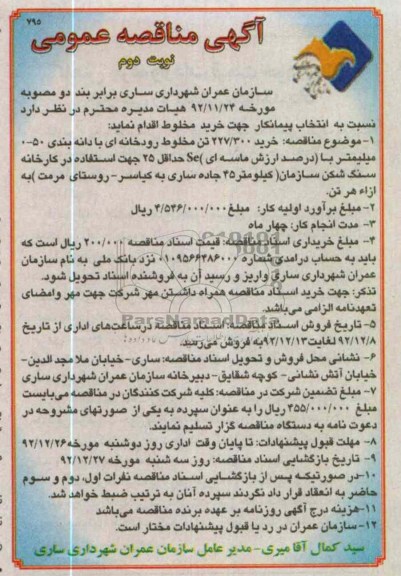 ۷۹۵
آگهی مناقصه عمومی
نوبت دوم
سازمان عمران شهرداری ساری برابر بند دو مصوبه
مورخه ۹۲/۱۱/۲۴ هیات مدیره محترم در نظر دارد
نسبت به انتخاب پیمانکار جهت خرید مخلوط اقدام نماید:
۱-موضوع مناقصه: خرید ۲۲۷/۳۰۰ تن مخلوط رودخانه ای با دانه بندی ۵۰-۰
میلیمتر با (درصد ارزش ماسه ای) Se حداقل ۲۵ جهت استفاده در کارخانه
سنگ شکن سازمان( کیلومتر ۴۵ جاده ساری به کیاسر- روستای مرمت )به
ازاء هر تن.
۲-مبلغ برآورد اولیه کار: مبلغ ۴/۵۴۶/۰۰۰/۰۰۰ ریال
۳- مدت انجام کار: چهار ماه
۴- مبلغ خریداری اسناد مناقصه: قیمت اسناد مناقصه ۲۰۰/۰۰۰ ریال است که
باید به حساب درآمدی شماره ۰۱۰۹۵۶۶۴۸۶۰۰۰ نزد بانک ملی به نام سازمان
عمران شهرداری ساری واریز و رسید آن به فروشنده اسناد تحویل شود.
تذکر: جهت خرید اسناد مناقصه همراه داشتن مهر شرکت جهت مهر وامضای
تعهدنامه الزامی می‌باشد.
۵- تاریخ فروش اسناد مناقصه: اسناد مناقصه درساعت‌های اداری از تاریخ
۹۲/۱۲/۸ لغایت ۹۲/۱۲/۱۳ به فروش می‌رسد.
۶- نشانی محل فروش و تحویل اسناد مناقصه: ساری-خیابان ملا مجد الدین-
خیابان آتش نشانی- کوچه شقایق- دبیرخانه سازمان عمران شهرداری ساری
۷- مبلغ تضمین شرکت در مناقصه: کلیه شرکت کنندگان در مناقصه می‌بایست
مبلغ ۴۵۵/۰۰۰/۰۰۰ ریال را به عنوان سپرده به یکی از صورتهای مشروحه در
دعوت نامه به دستگاه مناقصه گزار تسلیم نمایند.
۸- مهلت قبول پیشنهادات: تا پایان وقت اداری روز دوشنبه مورخه ۹۲/۱۲/۲۶
۹- تاریخ بازگشایی اسناد مناقصه: روز سه شنبه مورخه ۹۲/۱۲/۲۷
۱۰-در صورتیکه پس از بازگشایی اسناد مناقصه نفرات اول، دوم و سوم
حاضر به انعقاد قرار داد نگردند سپرده آنان به ترتیب ضبط خواهد شد.
۱۱-هزینه درج آگهی روزنامه بر عهده برنده مناقصه می‌باشد
۱۲-سازمان عمران در رد یا قبول پیشنهادات مختار است.
سید کمال آقا میری- مدیر عامل سازمان عمران شهرداری ساری
ParsNamadData